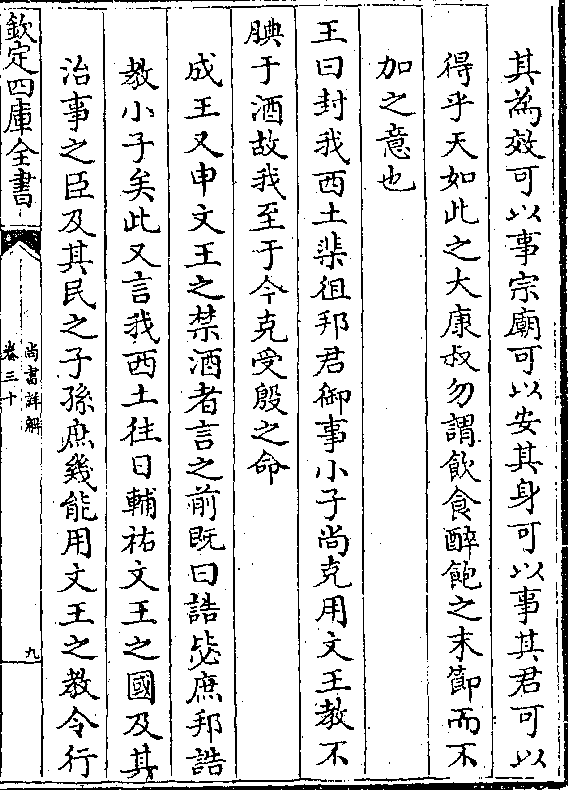 其為效可以事宗廟可以安其身可以事其君可以
得乎天如此之大康叔勿謂飲食醉飽之末節而不
加之意也
王曰封我西土棐徂邦君御事小子尚克用文王教不
腆于酒故我至于今克受殷之命
成王又申文王之禁酒者言之前既曰誥毖庶邦誥
教小子矣此又言我西土往日輔祐文王之國及其
治事之臣及其民之子孫庶幾能用文王之教令行
欽定四庫全書
尚書詳解
卷三十
九